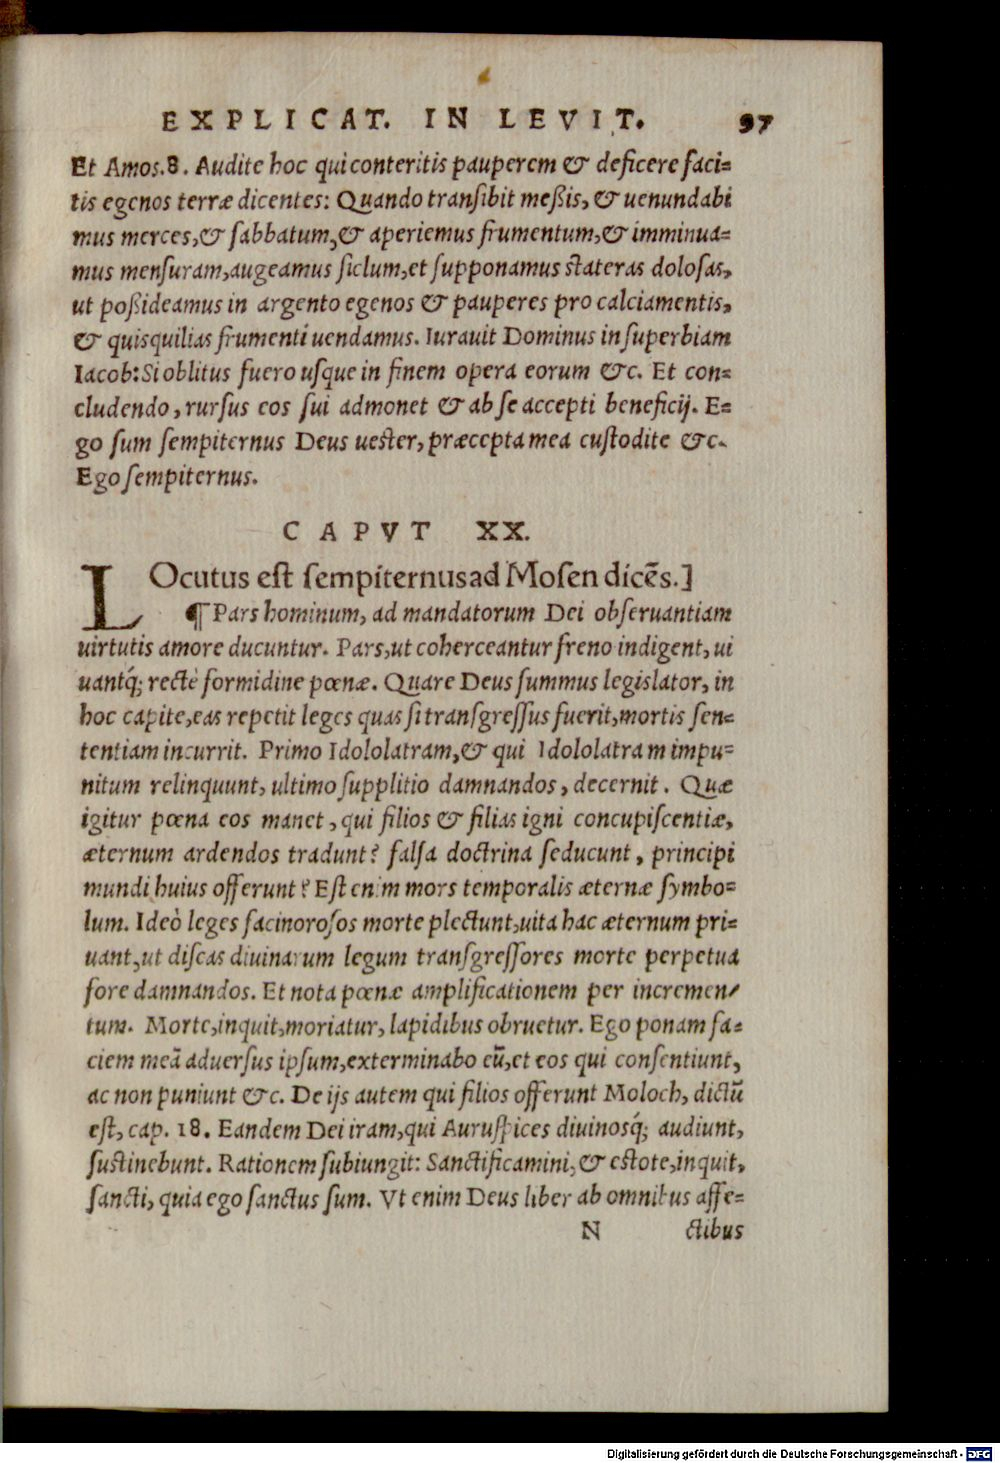 EXPLICAT. IN LEVIT. 97
Et Amos.8. Audite hoc qui conteritis pauperem & deficere faci=
tis egenos terræ dicentes: Quando transibit meßis, & uenundabi
mus merces,& sabbatum,& aperiemus frumentum,& imminua=
mus mensuram,augeamus siclum,et supponamus stateras dolosas,
ut poßideamus in argento egenos & pauperes pro calciamentis,
& quisquilias frumenti uendamus. Iurauit Dominus in superbiam
Iacob:Si oblitus fuero usque in finem opera eorum &c. Et con=
cludendo, rursus eos sui admonet & ab se accepti beneficij. E=
go sum sempiternus Deus uester, præcepta mea custodite &c.
Ego sempiternus.
CAPVT XX.
LOcutus est sempiternus ad Mosen dicēs.]
¶ Pars hominum, ad mandatorum Dei obseruantiam
uirtutis amore ducuntur. Pars,ut coherceantur freno indigent, ui
uantq́; rectè formidine pœnæ. Quare Deus summus legislator, in
hoc capite,eas repetit leges quas si transgressus fuerit,mortis sen=
tentiam incurrit. Primo Idololatram,& qui Idololatram impu=
nitum relinquunt, ultimo supplitio damnandos, decernit. Quæ
igitur pœna eos manet, qui filios & filias igni concupiscentiæ,
æternum ardendos tradunt? falsa doctrina seducunt, principi
mundi huius offerunt? Est enim mors temporalis æternæ symbo=
lum. Ideò leges facinorosos morte plectunt,uita hac æternum pri=
uant,ut discas diuinarum legum transgressores morte perpetua
fore damnandos. Et nota pœnæ amplificationem per incremen/
tum. Morte,inquit,moriatur, lapidibus obruetur. Ego ponam fa=
ciem meā aduersus ipsum,exterminabo eū,et eos qui consentiunt,
ac non puniunt &c. De ijs autem qui filios offerunt Moloch, dictū
est, cap. 18. Eandem Dei iram,qui Auruspices diuinosq́; audiunt,
sustinebunt. Rationem subiungit: Sanctificamini, & estote,inquit,
sancti, quia ego sanctus sum. Vt enim Deus liber ab omnibus affe=
N ctibus
Digitalisierung gefördert durch die Deutsche Forschungsgemeinschaft - DFG